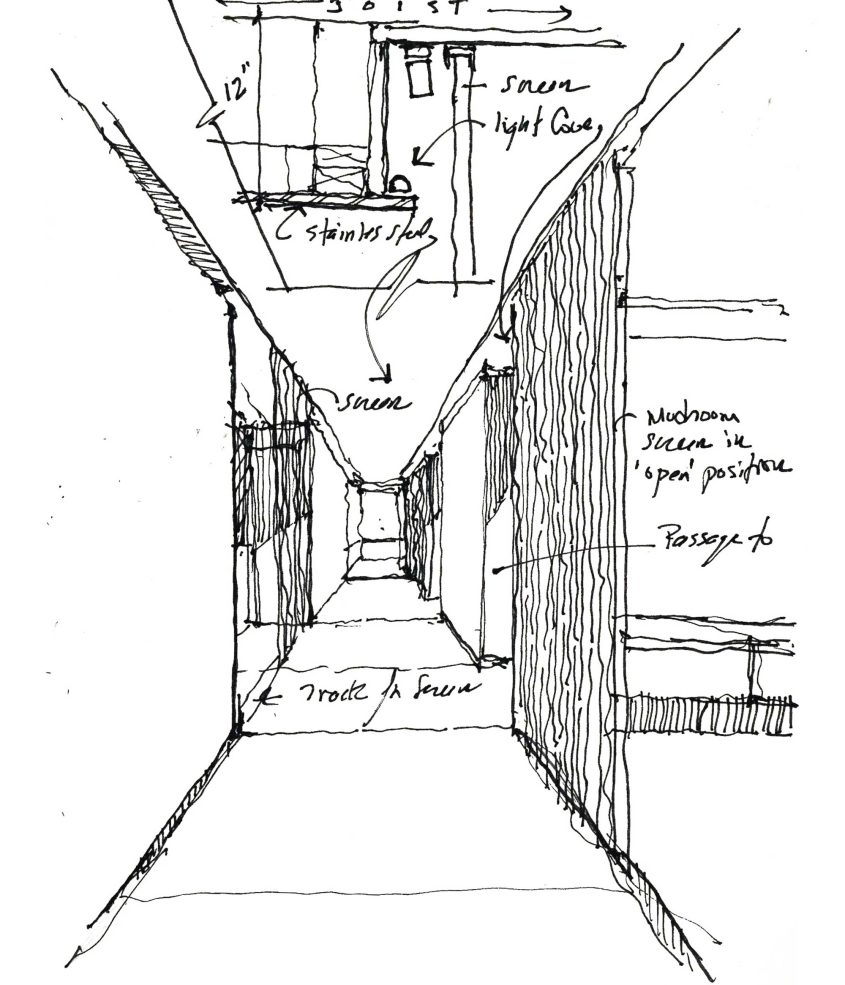 JOIST
12"
screen
light Cove
stainless steel
screen
Mudroom
screen in
'open' position
Passage to
Track for Screen